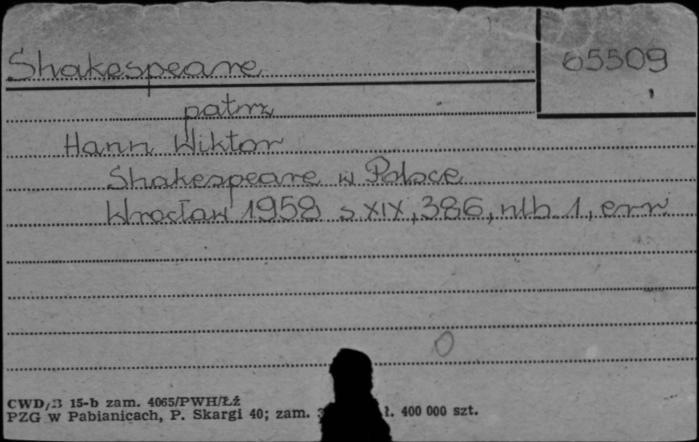 Shakespeare 65509
patrz
Hann Wiktor
Shakespeare w Polsce
Wrocław 1958 s. XIX, 386, nlb. 1, err.
0
CWD/B 15-b zam. 4065/PWH/Łź
PZG w Pabianicach, P. Skargi 40; zam. ł. 400 000 szt.